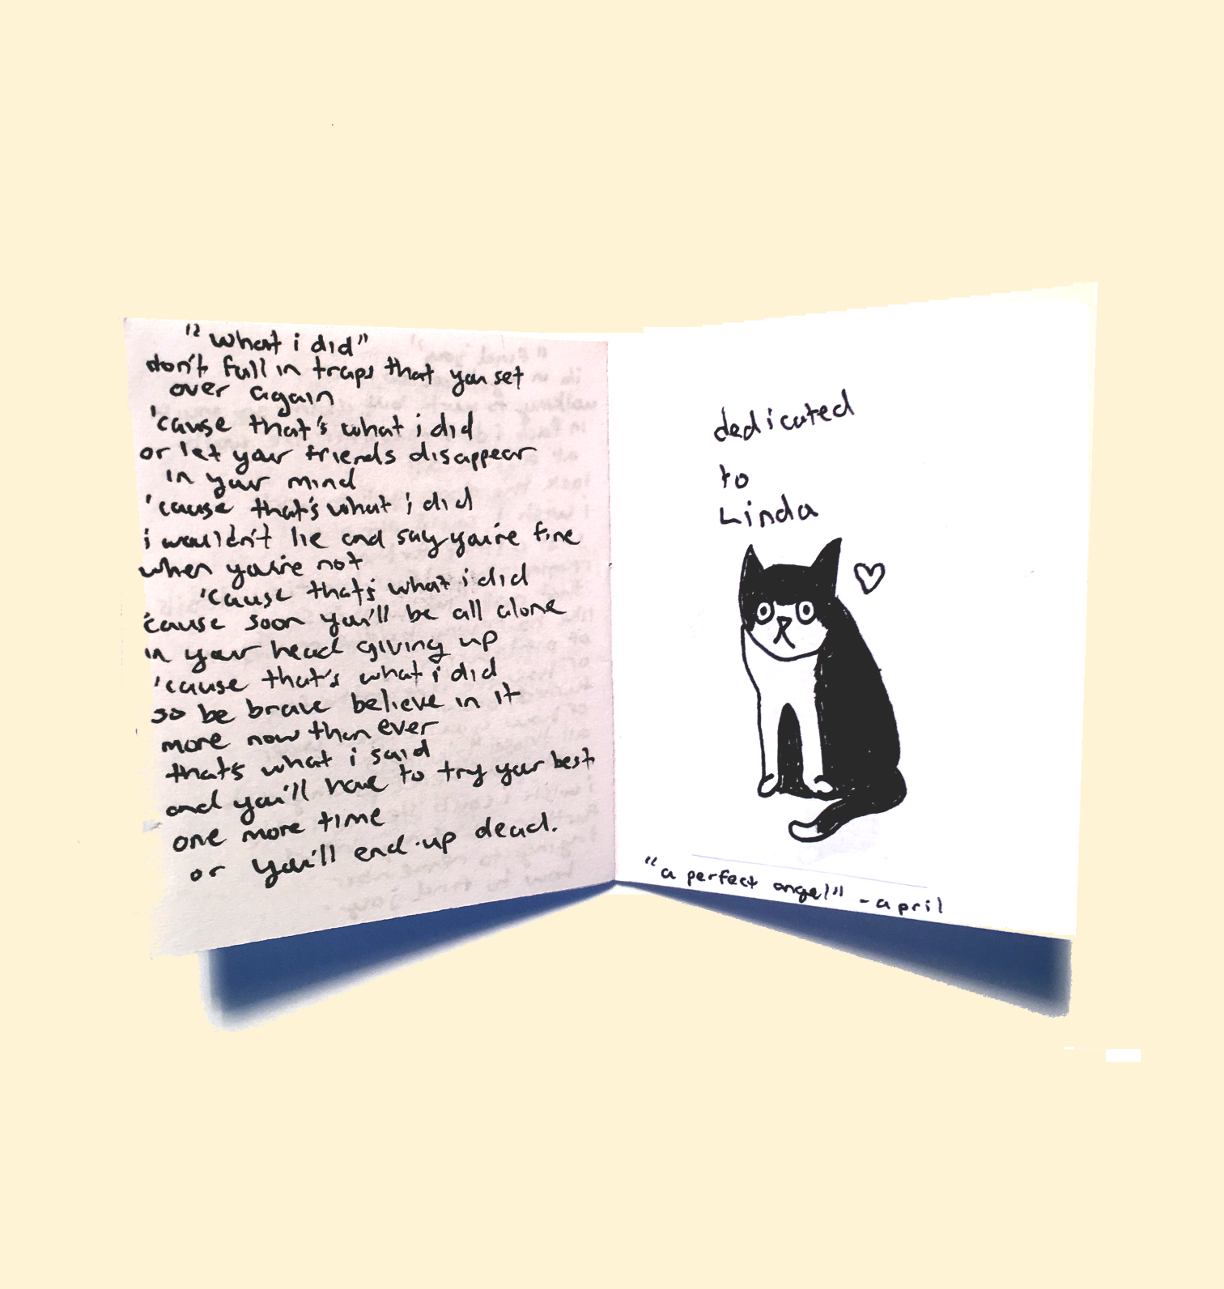 "what i did"
don't fall in traps that you set
over again
'cause that's what i did
or let your friends disappear
in your mind
'cause that's what i did
i wouldn't lie and say you're fine
when you're not
'cause that's what i did
'cause soon you'll be all alone
in your head giving up
'cause that's what i did
so be brave believe in it
more now than ever
that's what i said
and you'll have to try your best
one more time
or you'll end up dead.
dedicated
to
Linda
"a perfect angel" - april